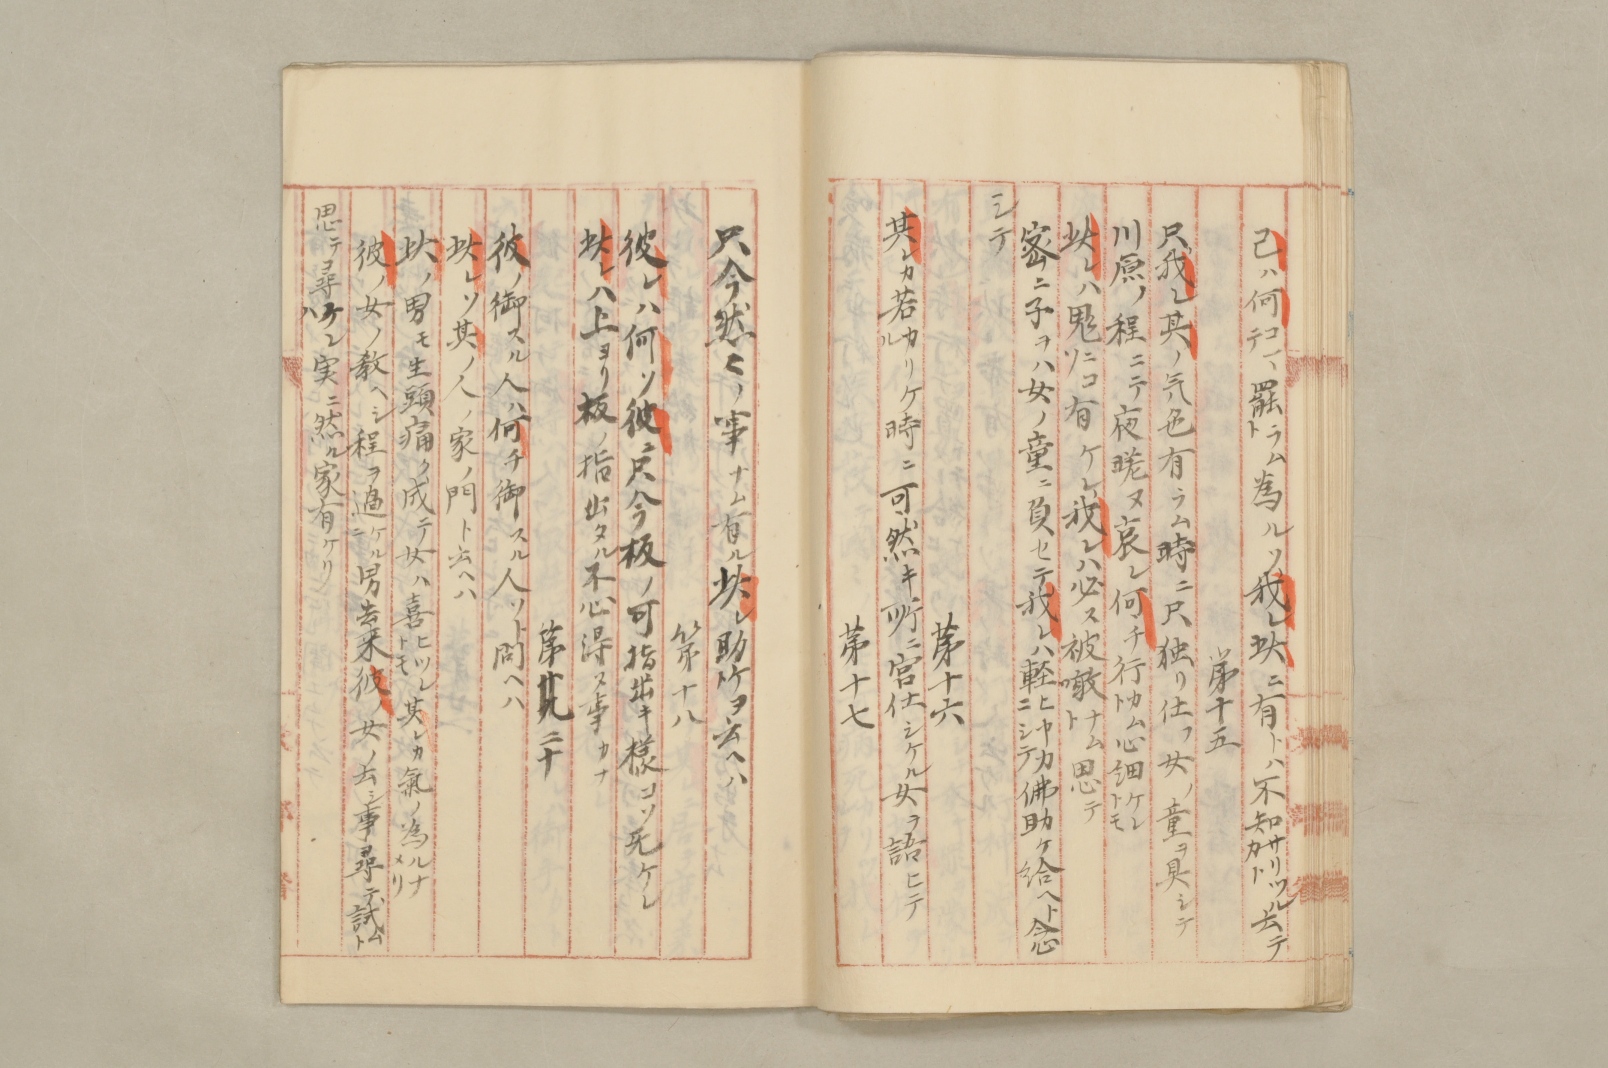 己ハ何テコヽ罷トラム為ルソ我レ此ニ有トハ不知サリツルカト云テ
第十五
只我レ其ノ気色有ラム時ニ只独リ仕フ女ノ童ヲ具シテ
川原ノ程ニテ夜暁ヌ哀レ何チ行カムト心細ケレトモ
此レハ鬼ニコソ有ケレ我レハ必ス被噉ナムト思テ
密ニ子ヲハ女ノ童ニ負セテ我レハ軽ヒヤカニシテ佛助ケ給ヘト念
シテ
第十六
其レカ若カリケル時ニ可然キ所ニ宮仕シケル女ヲ語ヒテ
第十七
只今然〻ノ事ナム有ル此レ助ケヨト云ヘハ
第十八
彼レハ何ソ彼ニ只今板ノ可指出キ様コソ无ケレ
此レハ上ヨリ板ノ指出タル不心得ス事カナ
第廿九二十
彼ノ御スル人ハ何チ御スル人ソト問ヘハ
此レソ其ノ人ノ家ノ門ト云ヘハ
此ノ男モ生頭痛ク成テ女ハ喜ヒツレトモ其レカ氣ノ為ルナメリ
彼ノ女ノ教ヘシ程ヲ過ケルニ男去来彼ノ女ノ云シ事尋テ試ムト
思テ尋ケレハ実ニ然ル家有ケリ